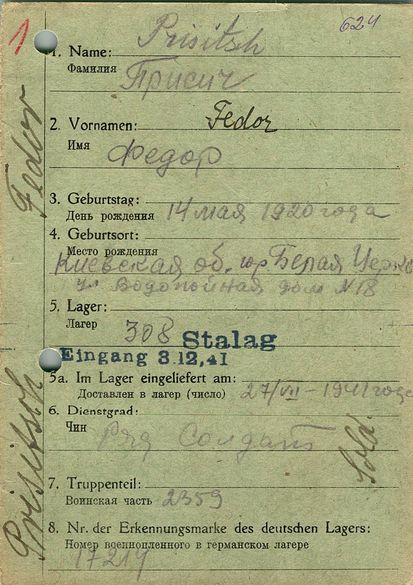 1
624
Prisitsh
1. Name:
Фамилия Присич
2. Vornamen: Fedor
Имя Федор
3. Geburtstag:
День рождения 14 мая 1920 года
4. Geburtsort:
Место рождения
Киевская об. гор Белая Церк
ул Водопойная дом №18
5. Lager:
Лагер 308 Stalag
Eingang 3.12.41
5a. Im Lager eingeliefert am:
Доставлен в лагер (число) 27/VII – 1941 года
6. Dienstgrad:
Чин Ряд Солдат
Sold.
7. Truppenteil:
Воинская часть 2359
8. Nr. der Erkennungsmarke des deutschen Lagers:
Номер военнопленного в германском лагере
17219
Prisitsch Fedor